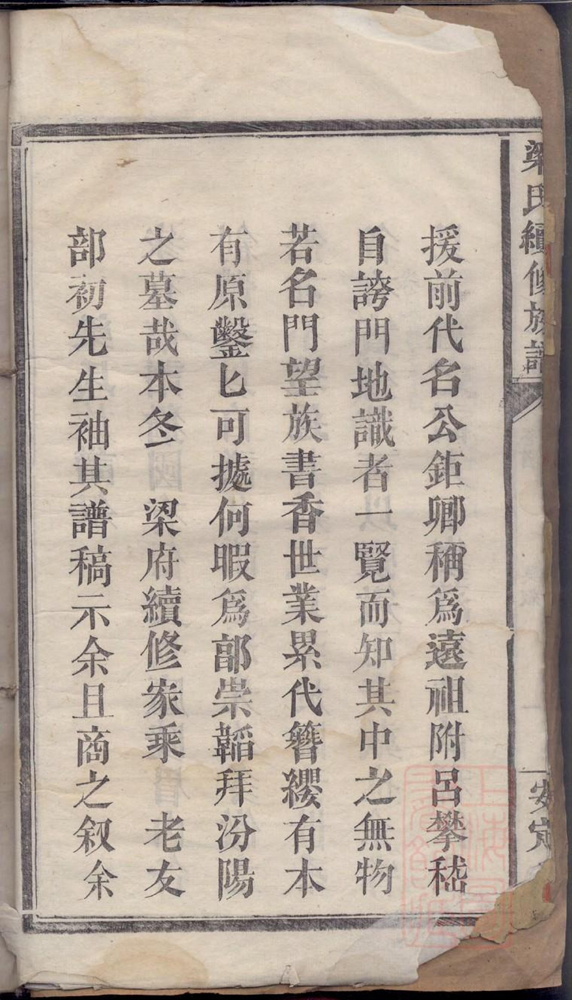 梁氏續修族譜
援前代名公鉅卿稱爲遠祖附呂攀嵇
自誇門地識者一覽而知其中之無物
若名門望族書香世業累代簪纓有本
有原鑿匕可據何暇爲郭崇韜拜汾陽
之墓哉本冬 梁府續修家乘 老友
部初先生袖其譜稿示余且商之叙余
安定